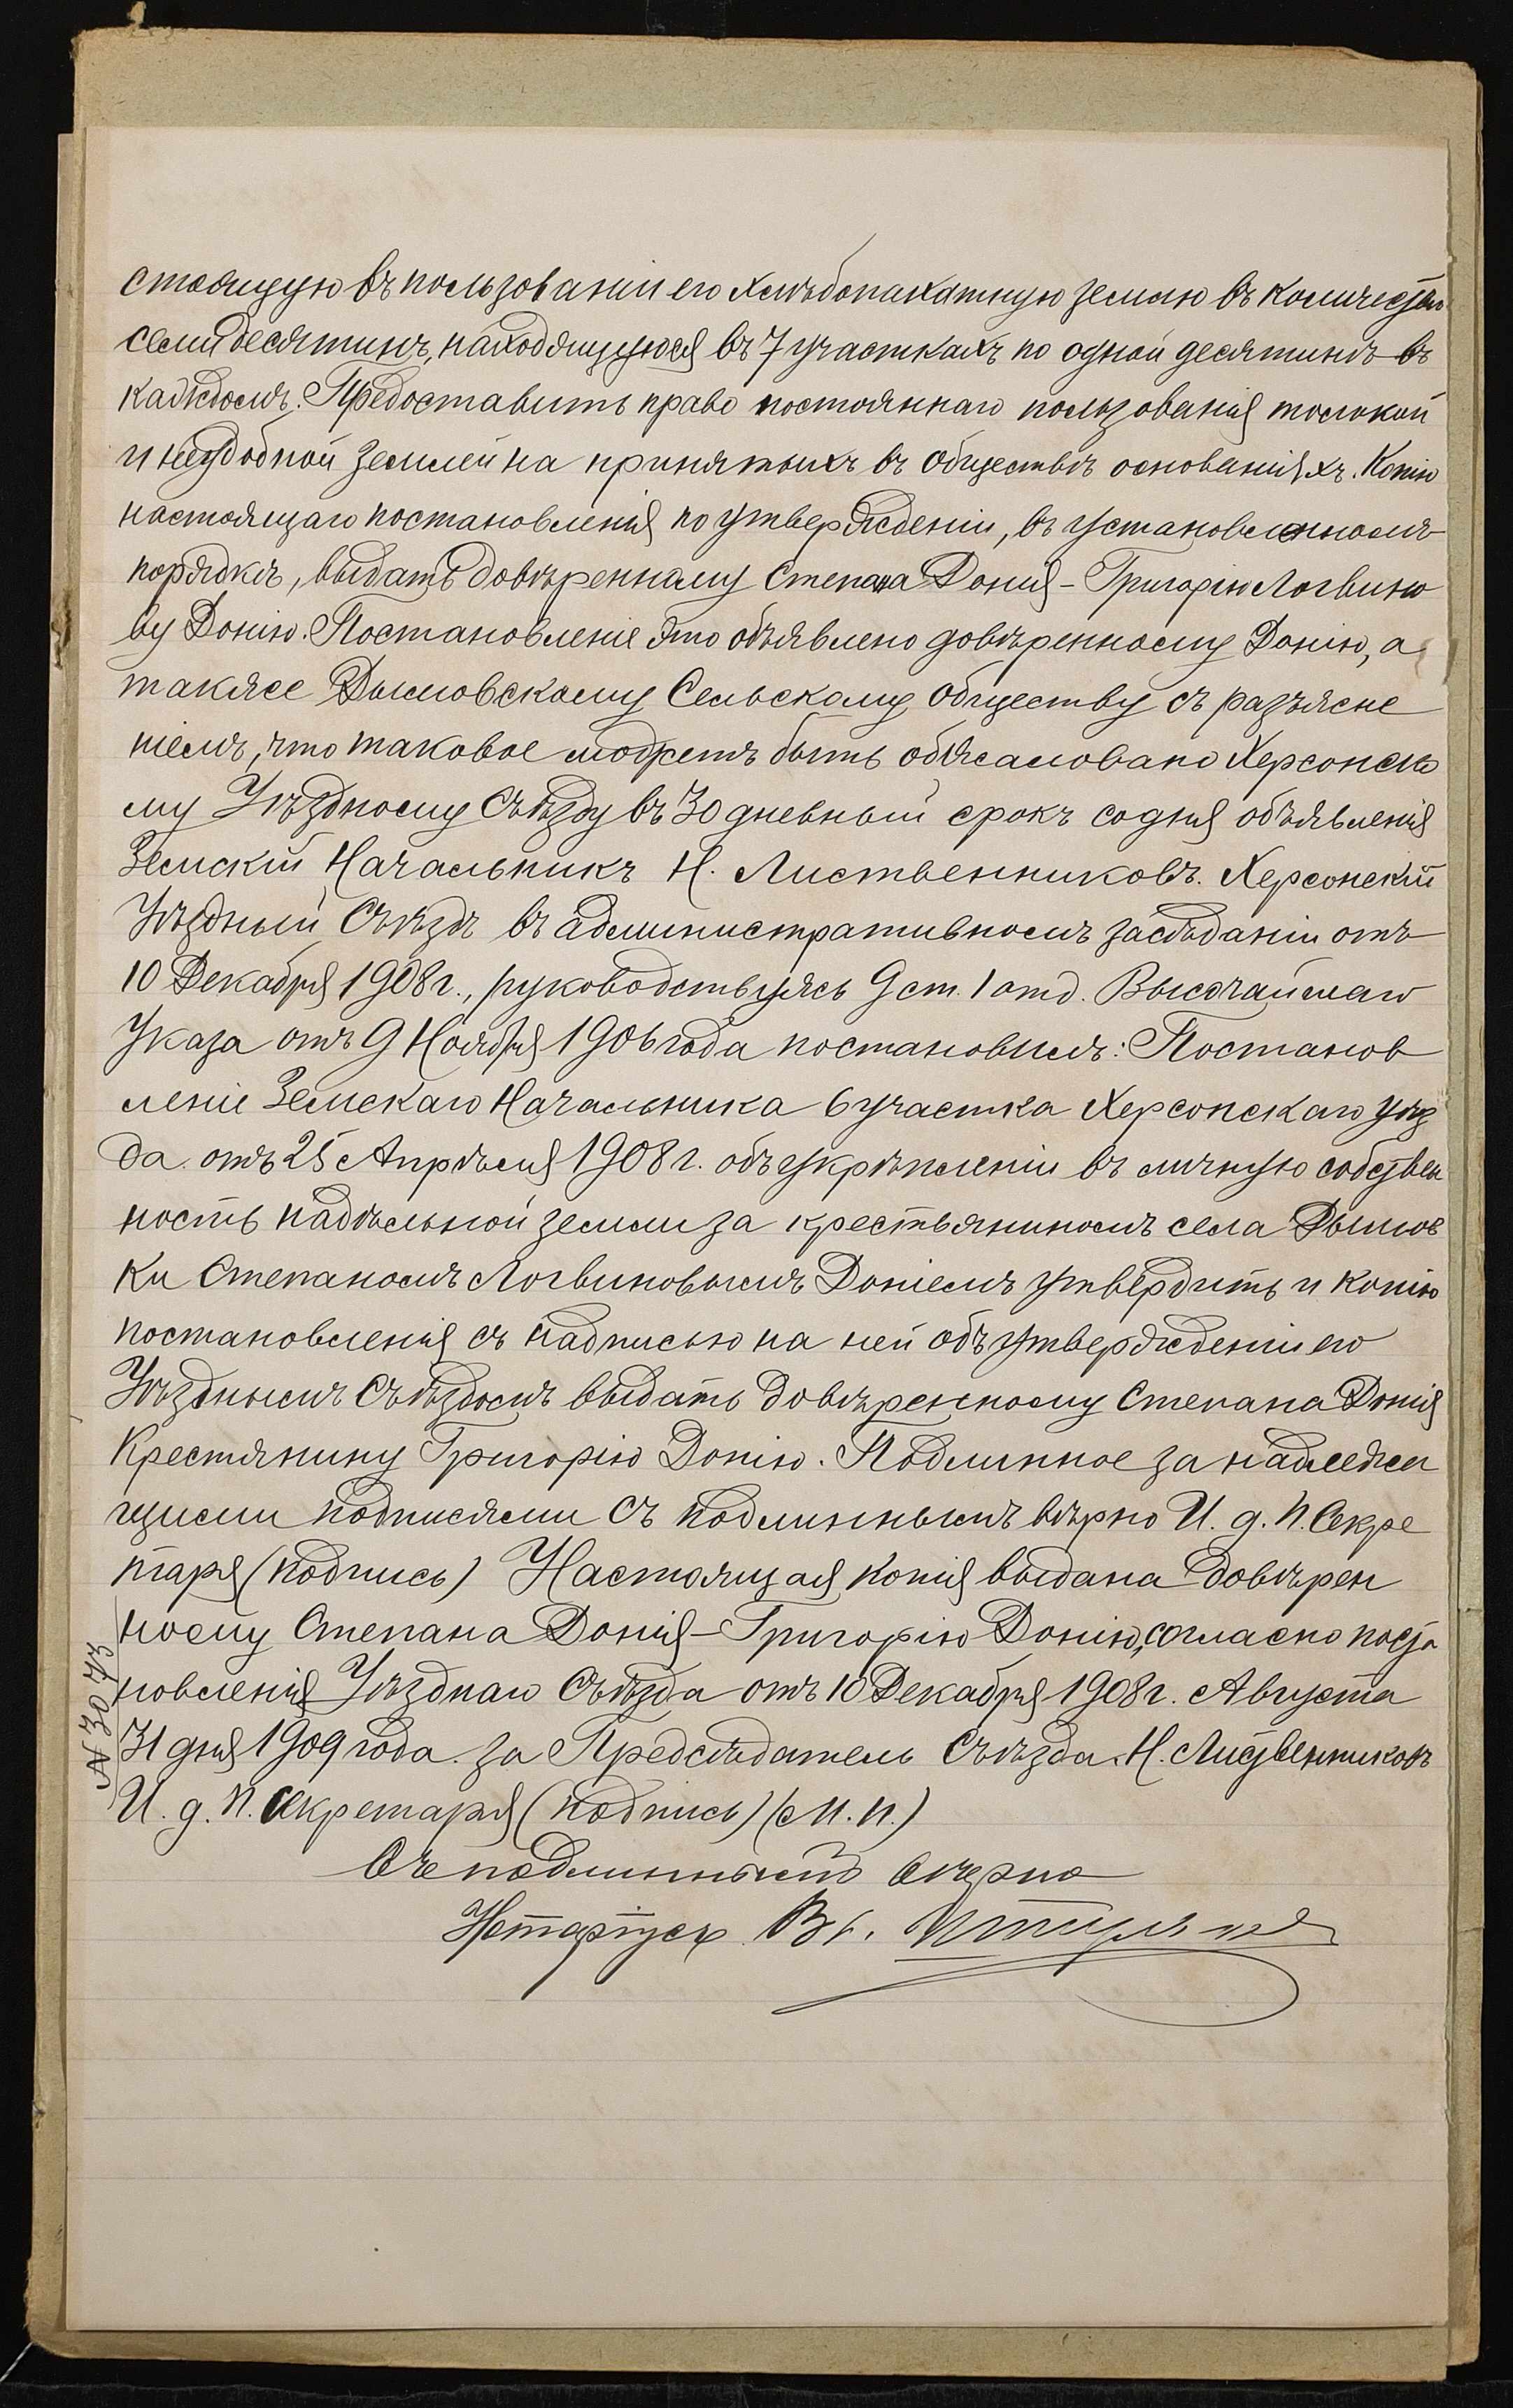 стоящую въ пользованіи его хлѣбопахатную землю въ количествѣ
семи десятинъ, находящуюся въ 7 участкахъ по одной десятинѣ въ
каждомъ. Предоставить право постояннаго пользованія толокой
и неудобной землей на принятыхъ въ обществѣ основаніяхъ. Копію
настоящаго постановленія по утвержденіи, въ установленномъ
порядкѣ, выдать довѣренному Степана Донія - Григорію Логвино
ву Донію. Постановленіе это объявлено довѣренному Донію, а
также Дымовскому Сельскому обществу съ разъясне
ніемъ, что таковое можетъ быть обжаловано Херсонско
му Уѣздному Съѣзду въ 30 дневный срокъ со дня объявленія
Земскій Начальникъ Н. Лиственниковъ. Херсонскій
Уѣздный Съѣздъ въ административномъ засѣданіи отъ
10 Декабря 1908 г., руководствуясь 9 ст. 1 отд. Высочайшаго
Указа отъ 9 Ноября 1906 года постановилъ: Постанов
леніе Земскаго Начальника 6 участка Херсонскаго уѣз
да отъ 25 Апрѣля 1908 г. объ укрѣпленіи въ личную собствен
ность надѣльной земли за крестьяниномъ села Дымов
ки Степаномъ Логвиновымъ Доніемъ утвердить и копію
постановленія съ надписью на ней объ утвержденіи его
Уѣзднымъ Съѣздомъ выдать довѣренному Степана Донія
Крестянину Григорію Донію. Подлинное за надлежа
щими подписями Съ подлиннымъ вѣрно И. д. п. Секре
таря (подпись) Настоящая копія выдана довѣрен
ному Степана Донія - Григорію Донію, согласно поста
новленія Уѣзднаго Съѣзда отъ 10 Декабря 1908 г. Августа
31 дня 1909 года. за Предсѣдатель Съѣзда Н. Лиственниковъ
И. д. п. Секретаря (подпись) (М. п.)
№ 3073
Съ подлиннымъ вѣрно
Нотаріусъ Вл.